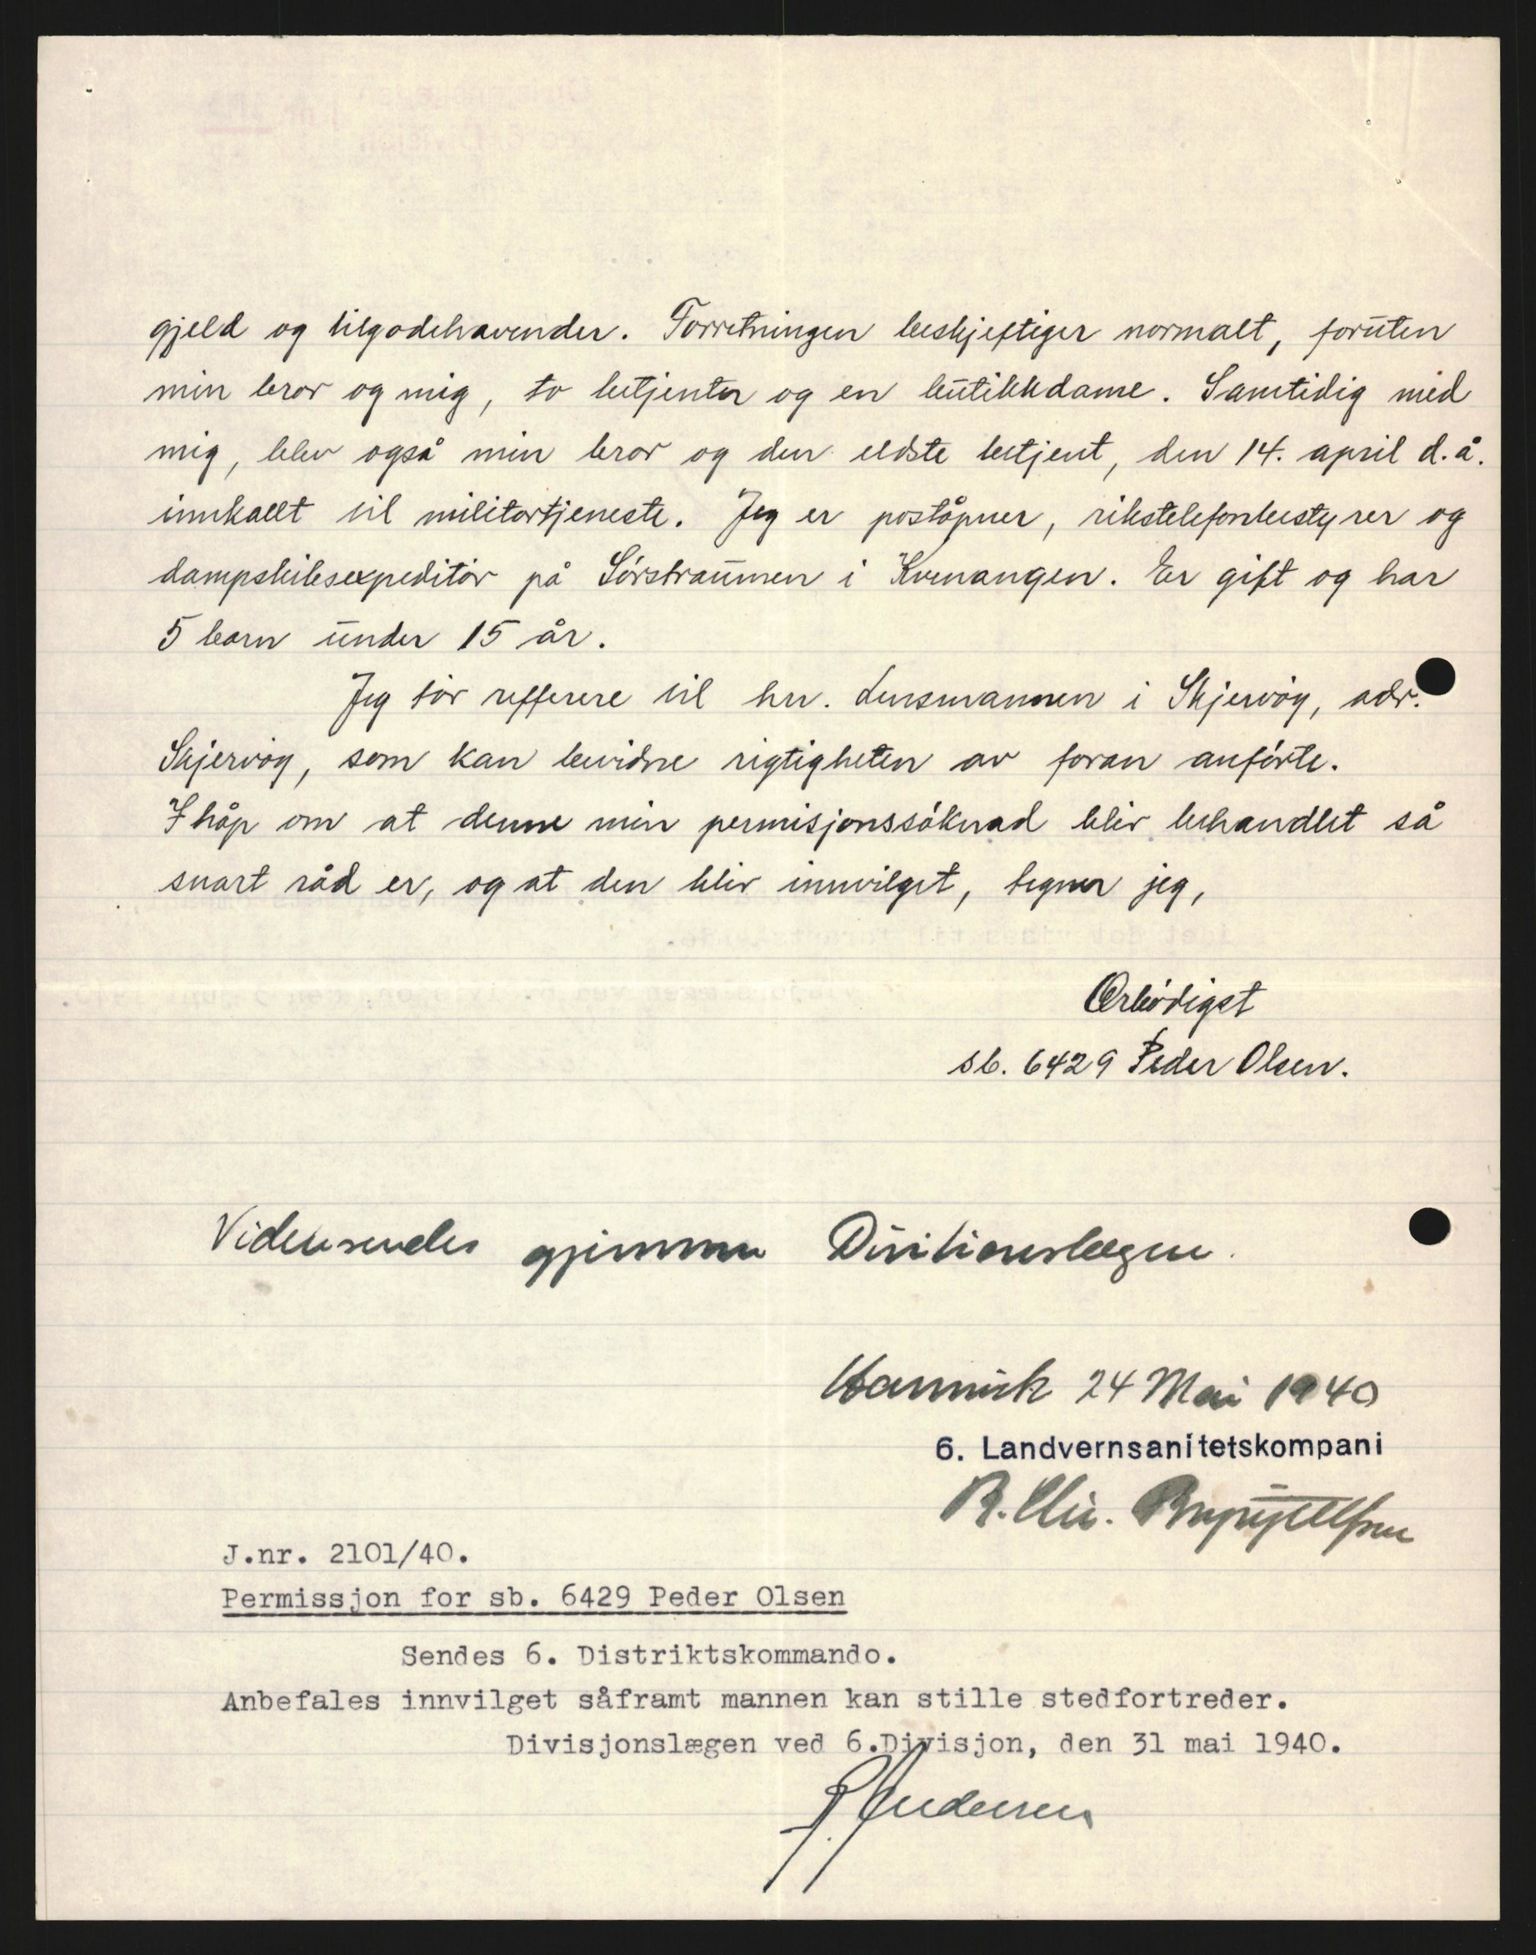 gjeld og tilgodehavender. Forretningen beskjeftiger normalt, foruten
min bror og mig, to betjenter og en butikkdame. Samtidig med
mig, blev også min bror og den eldste betjent, den 14. april d.å.
innkallt til militærtjeneste. Jeg er poståpner, rikstelefonbestyrer og
dampskibsexpeditør på Sørstraumen i Kvenangen. Er gift og har
5 barn under 15 år.
Jeg tør refferere til hr. Lensmannen i Skjervøy, adr.
Skjervøy, som kan bevidne rigtigheten av foran anførte.
I håp om at denne min permisjonssøknad blir behandlet så
snart råd er, og at den blir innvilget, tegner jeg,
Ærbødigst
sb. 6429 Peder Olsen.
Videresendes gjennem Divisionslægen.
24 Mai 1940
6. Landvernsanitetskompani
J.nr. 2101/40.
Permissjon for sb. 6429 Peder Olsen
Sendes 6. Distriktskommando.
Anbefales innvilget såframt mannen kan stille stedfortreder.
Divisjonslægen ved 6.Divisjon, den 31 mai 1940.
Andersen